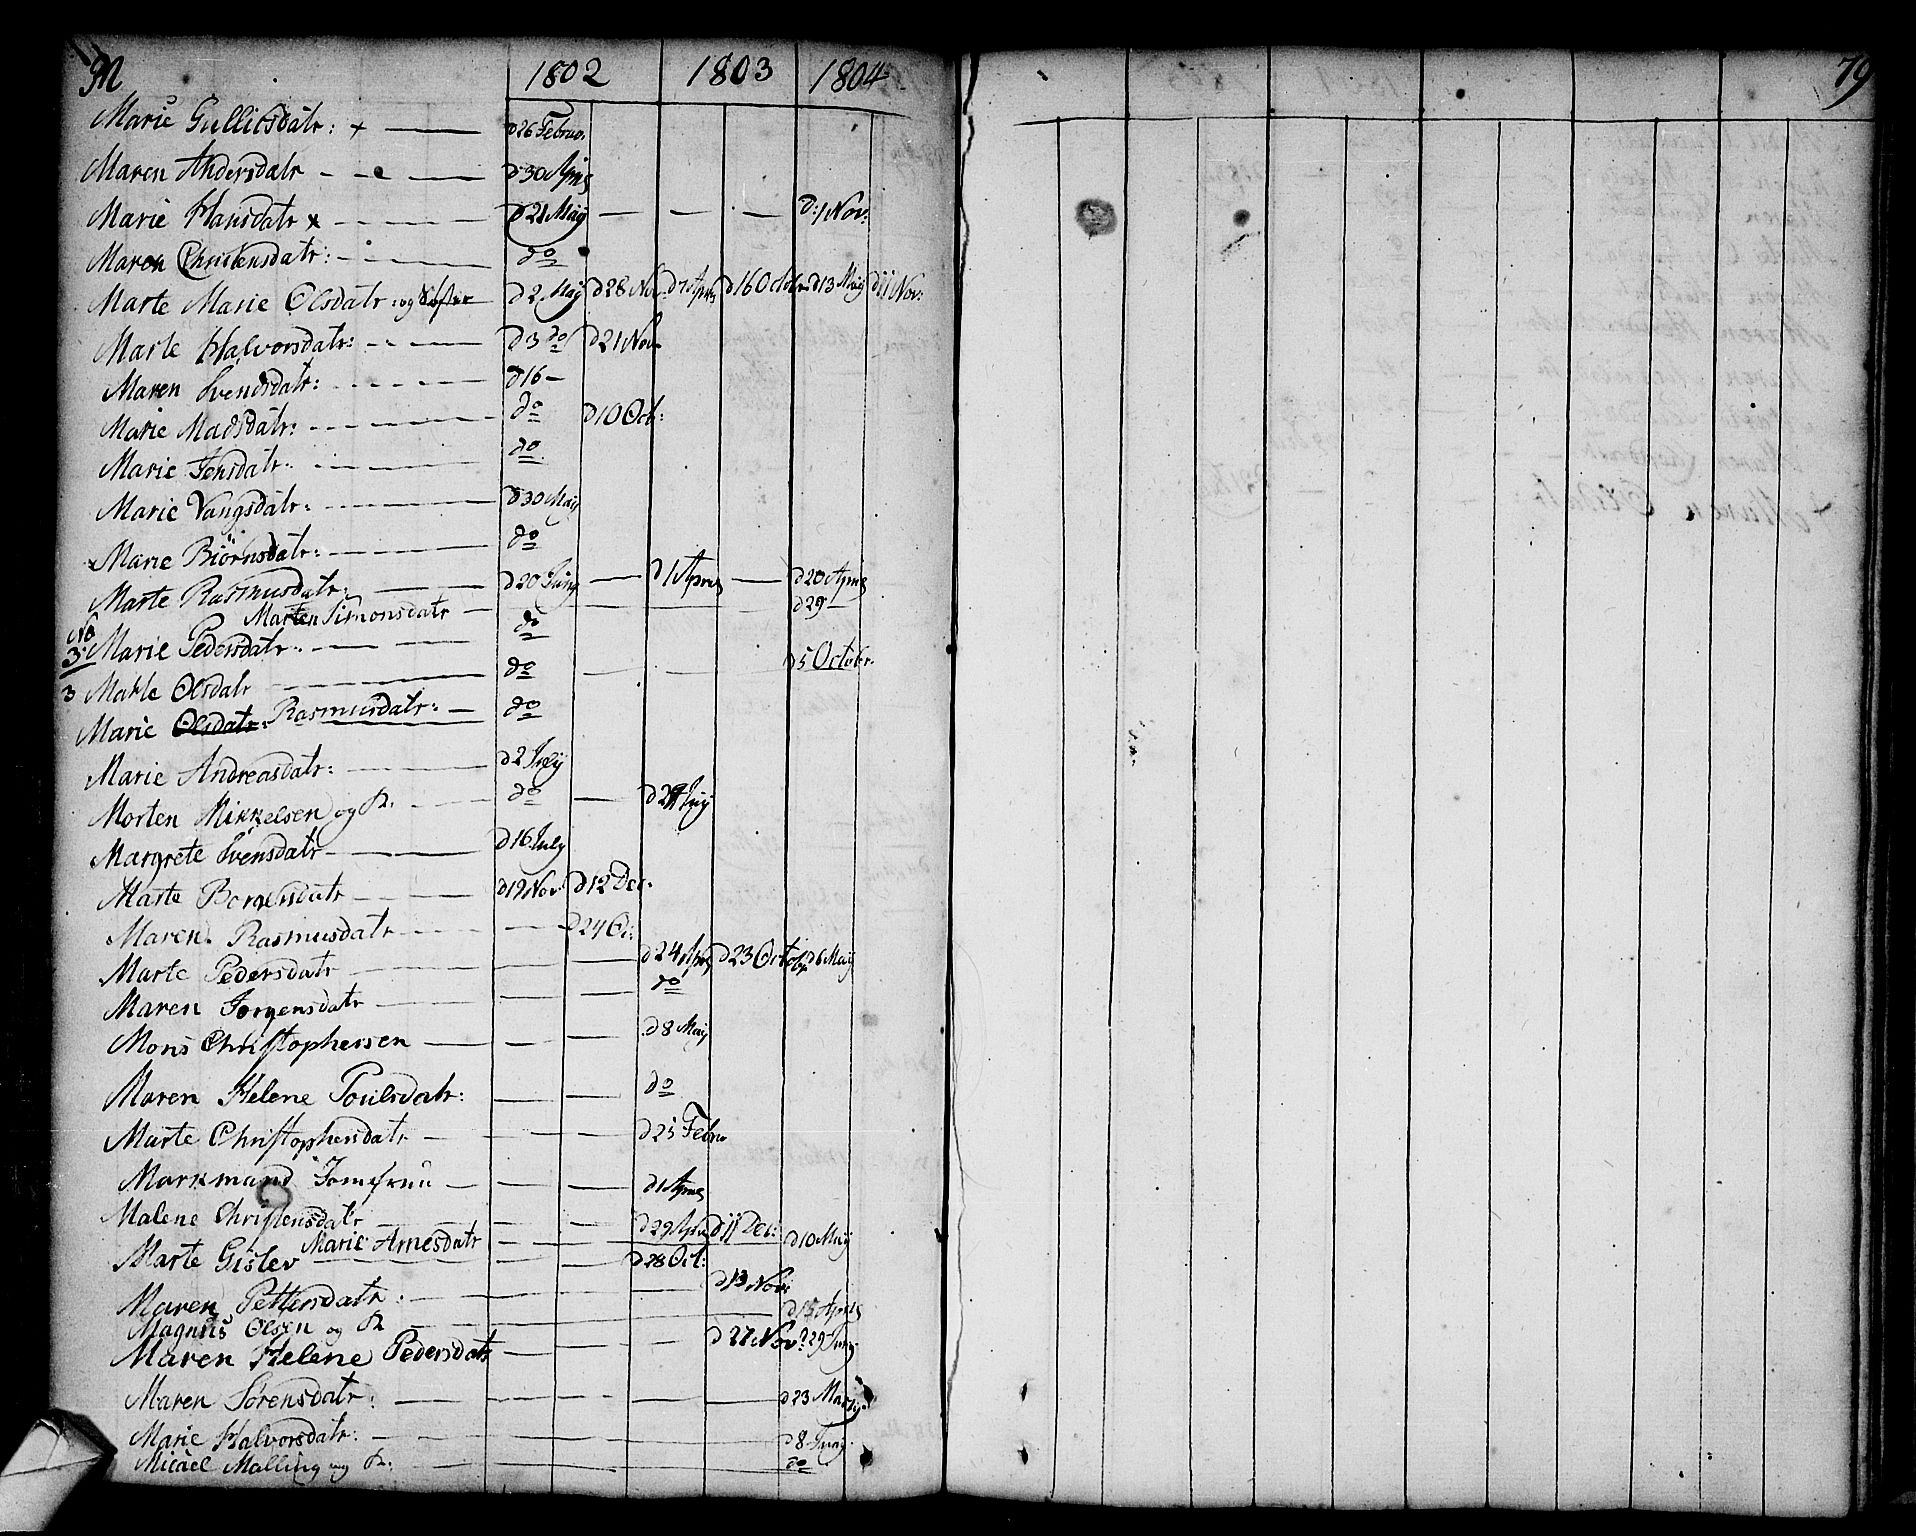 M 1802 1803 1804 79
Marie Gullicsdatr: + — d 26 Februo.
Maren Andersdatr — d 30 April
Marie Hansdatr x — d 21 Maij — — — d: 1 Nov:
Maren Christensdatr: — do
Marte Marie Olsdatr: og d 2 Maij d 28 Nov. d 7 April d 16 Octobr d 13 Maij d 11 Nov:
Marte Halvorsdatr: — d 3 do d 21 Nov
Maren Svendsdatr: — d 16 —
Marie Madsdatr: — do d 10 Oct:
Marie Jensdatr: — do
Marie Vangsdatr: — d 30 Maij
Marie Biörnsdatr: — do
Marte Rasmusdatr: — d 20 Junij — d 1 April — d 20 April
Marten Simonsdatr — d 29 —
No
3 Marie Pedersdatr: — do
3 Marte Olsdatr — do — — — d 5 Octobr.
Marie Olsdatr: Rasmusdatr: — do
Marie Andreasdatr: — d 2 Julij
Morten Mikkelsen og R. — do — d 29 Juij
Margrete Svensdatr — d 16 July
Marte Borgersdatr — d 19 Nov d 12 Dec:
Maren Rasmusdatr — — d 24 Oc:
Marte Pedersdatr — — — d 24 April d 23 Octobr d 6 Maij
Maren Jorgensdatr — — — do
Mons Christophersen — — — d 8 Maij
Maren Helene Poulsdatr: — — do
Marte Christophersdatr — — — d 25 Febru
Markmand Jomfruu — — — d 1 April
Malene Christensdatr — — — d 29 April d 11 Dec:
Marie Arnesdatr — — d 10 Maij
Marte Gislev — — — d 28 Oct:
Maren Pettersdatr: — — — d 13 Nov:
Magnus Olsen og R — d 15 April
Maren Helene Pedersdatr — — — d 27 Nov: d 29 Junij
Maren Sörensdatr: — — — — d 23 Martij
Marie Halvorsdatr: — — d 8
Micael Malling og R: — — do